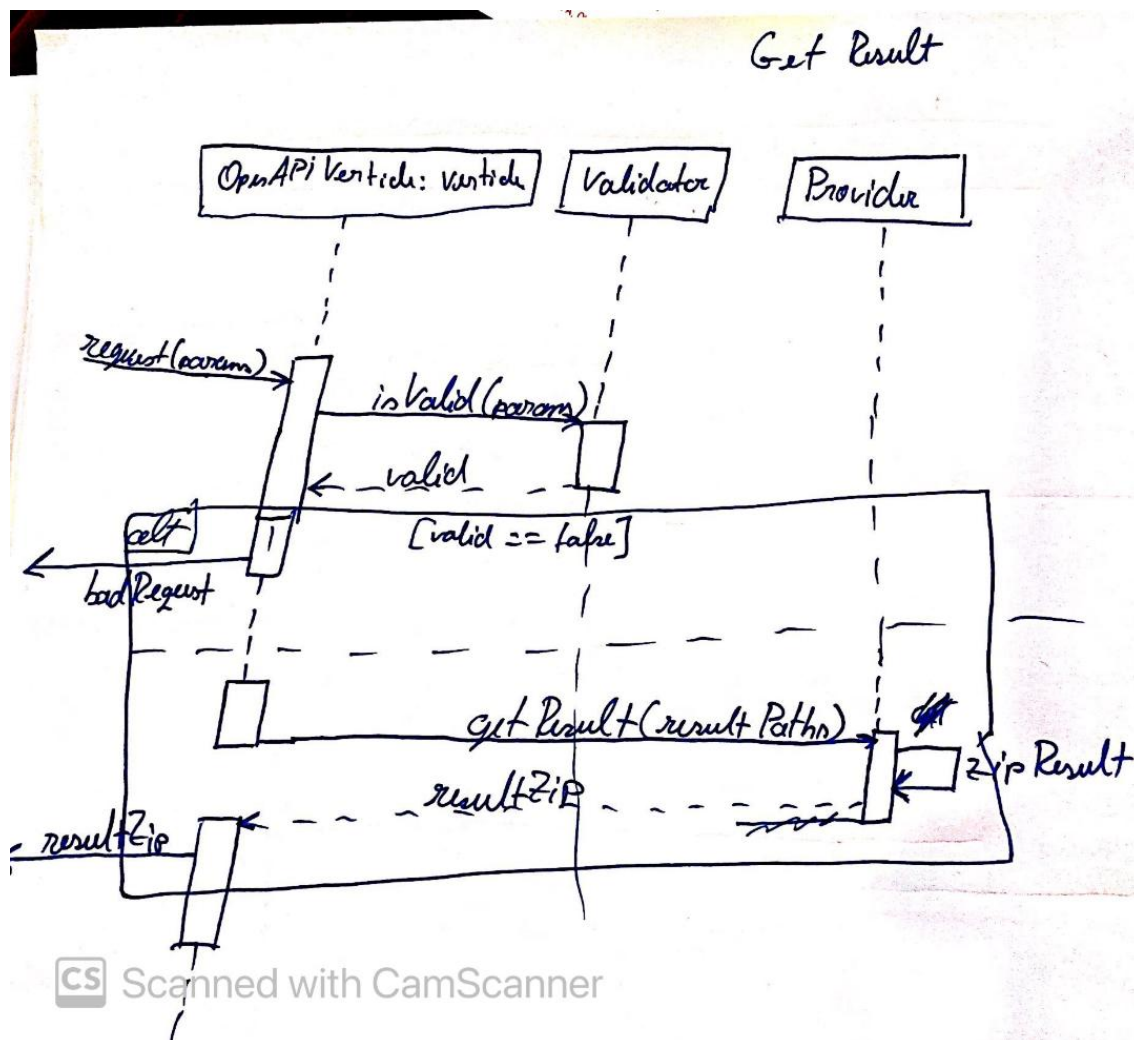 Get Result
OpenAPI Verticle: Verticle
Validator
Provider
request(params)
isValid(params)
valid
alt
[valid == false]
badRequest
getResult(resultPaths)
zipResult
resultZip
resultZip
CS Scanned with CamScanner